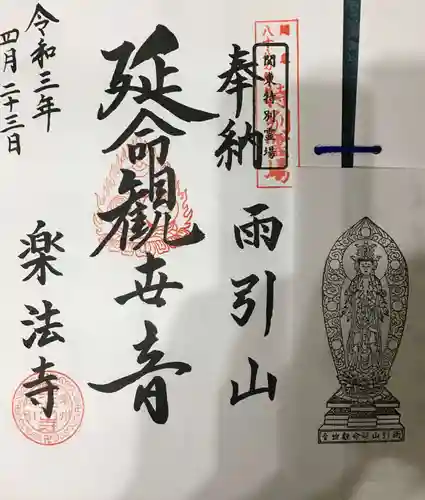 奉納
雨引山
関東特別霊場
延命観世音
令和三年
四月二十三日
楽法寺
雨引山延命観世音